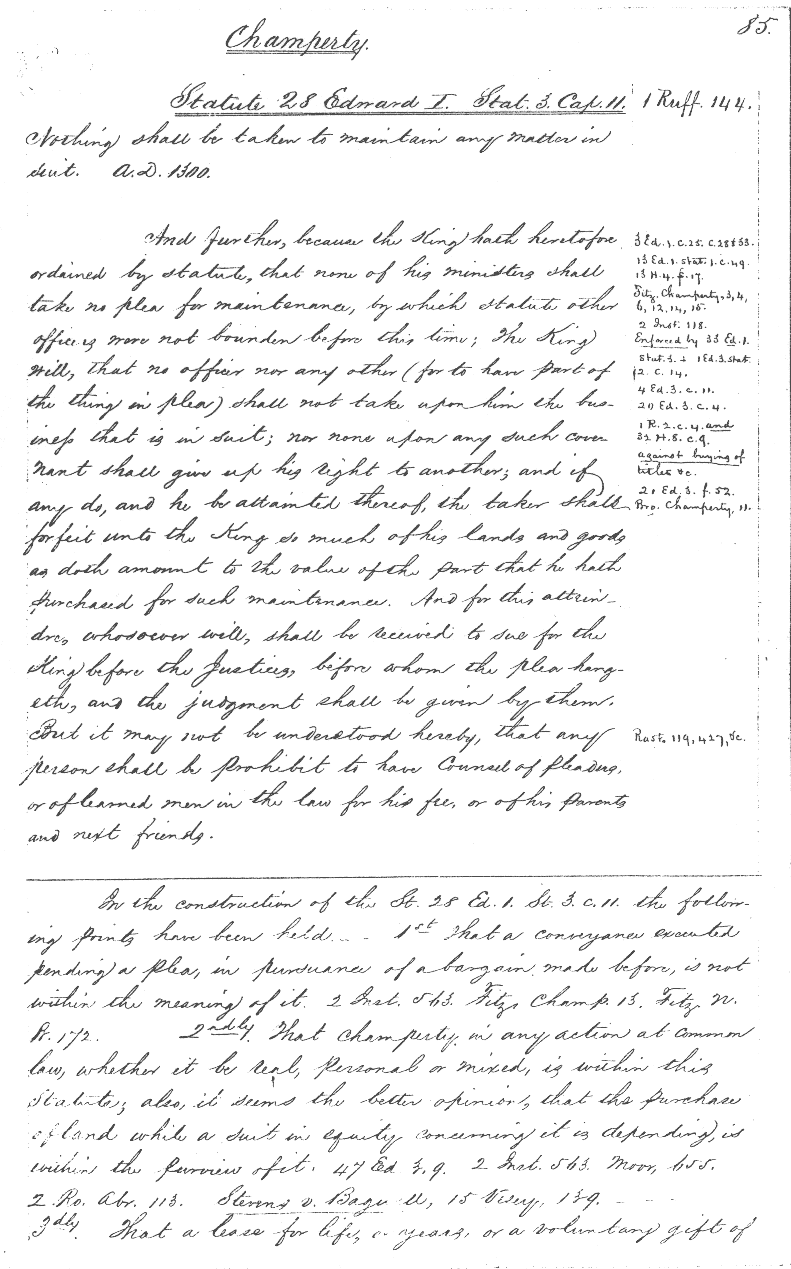 85.
Champerty.
Statute 28 Edward I. Stat. 3. Cap. 11. 1 Ruff. 144.
Nothing shall be taken to maintain any matter in
suit. A.D. 1300.
And further, because the King hath heretofore
ordained by statute, that none of his ministers shall
take no plea for maintenance, by which statute other
officers were not bounden before this time; The King
will, that no officer nor any other (for to have part of
the thing in plea) shall not take upon him the bus-
iness that is in suit; nor none upon any such cove-
nant shall give up his right to another; and if
any do, and he be attainted thereof, the taker shall
forfeit unto the King so much of his lands and goods
as doth amount to the value of the part that he hath
purchased for such maintenance. And for this attain-
dre, whosoever will, shall be received to sue for the
King before the Justices, before whom the plea hang-
eth, and the judgment shall be given by them.
But it may not be understood hereby, that any
person shall be prohibit to have Counsel of Pleaders,
or of learned men in the law for his fee, or of his Parents
and next friends.
3 Ed. 1. c. 25. c. 28 & 33.
13 Ed. 1. stat. 1. c. 49.
13 H. 4. f. 17.
Fitz. Champerty, 3, 4,
6, 12, 14, 15.
2 Inst. 118.
Enforced by 33 Ed. 1.
Stat. 3. & 1 Ed. 3. stat.
2. c. 14.
4 Ed. 3. c. 11.
20 Ed. 3. c. 4.
1 R. 2. c. 4. and
32 H. 8. c. 9.
against buying of
titles &c.
20 Ed. 3. f. 52.
Bro. Champerty, 11.
Rast. 119, 427, &c.
In the construction of the St. 28 Ed. 1. St. 3. c. 11. the follow-
ing points have been held... 1st That a conveyance executed
pending a plea, in pursuance of a bargain made before, is not
within the meaning of it. 2 Inst. 563. Fitz. Champ. 13. Fitz. N.
B. 172. 2ndly. That champerty in any action at common
law, whether it be real, personal or mixed, is within this
Statute; also, it seems the better opinion, that the purchase
of land while a suit in equity concerning it is depending, is
within the purview of it. 47 Ed 3. 9. 2 Inst. 563. Moor, 655.
2. Ro. Abr. 113. Stevens v. Bagwell, 15 Vesey, 139.
3dly. That a lease for life, or years, or a voluntary gift of